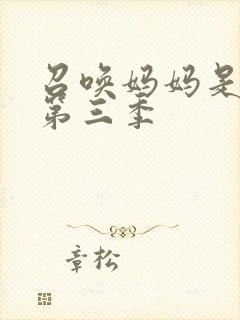 召唤妈妈是
第三季
章松